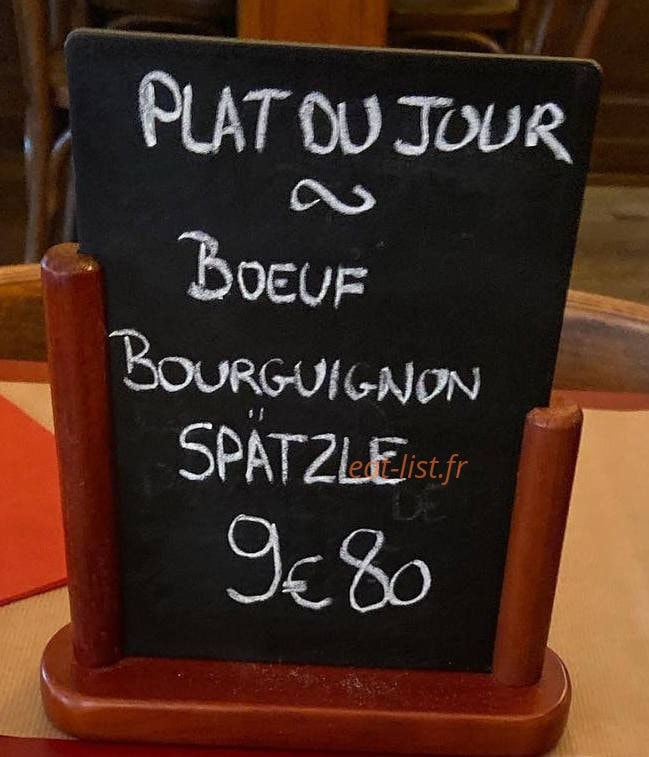 PLAT DU JOUR
~
BOEUF
BOURGUIGNON
SPÄTZLE
eat-list.fr
DE
9€80